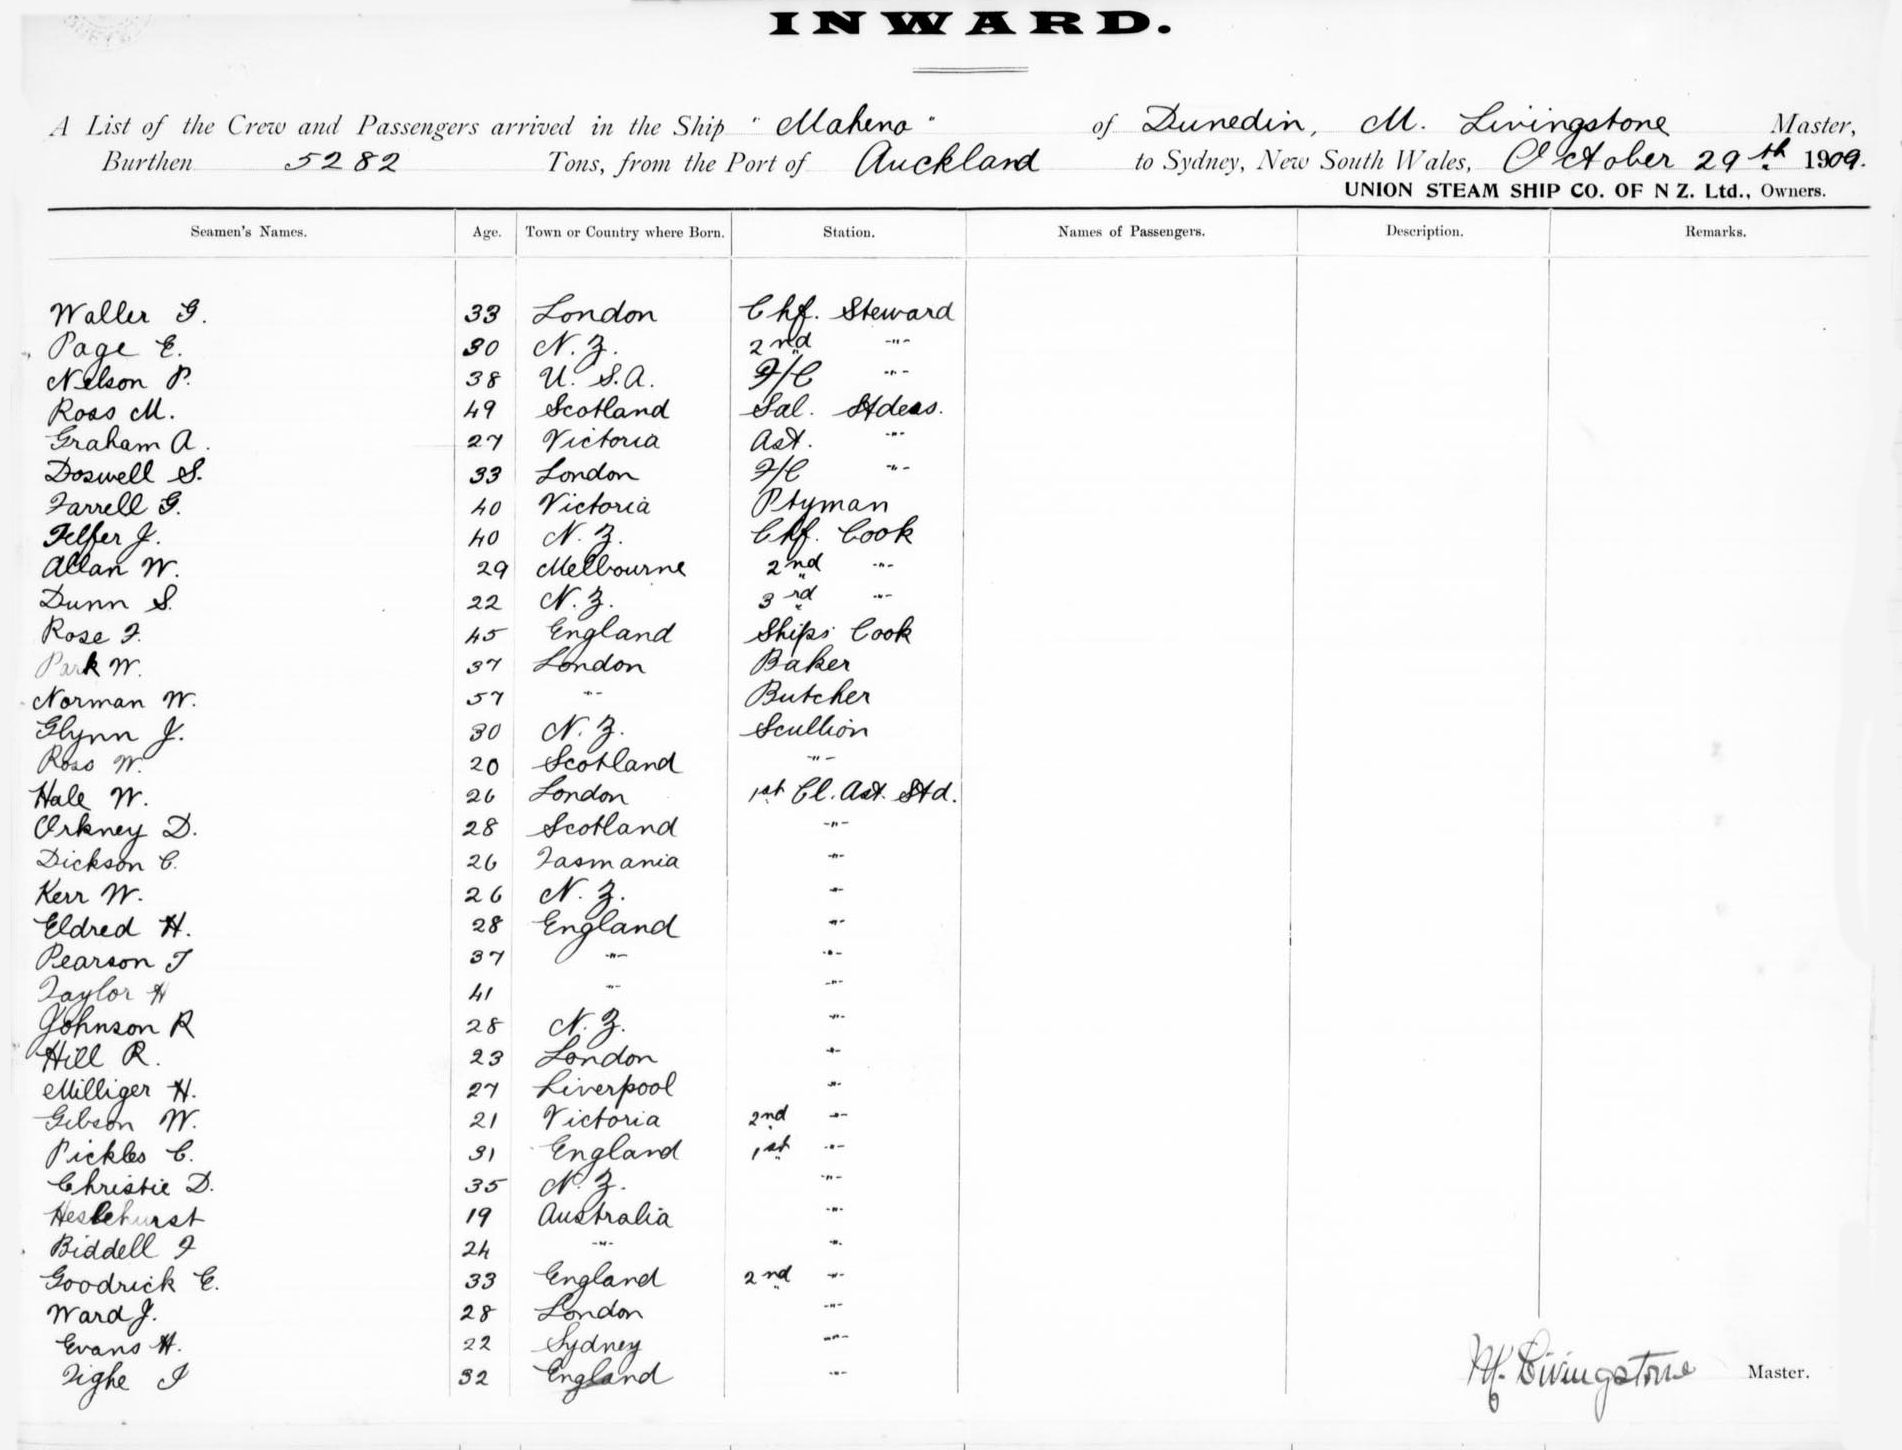 INWARD.
A List of the Crew and Passengers arrived in the Ship "Maheno" of Dunedin, M. Livingstone Master,
Burthen 5282 Tons, from the Port of Auckland to Sydney, New South Wales, October 29th 1909.
UNION STEAM SHIP CO. OF N Z. Ltd., Owners.
Seamen's Names. Age. Town or Country where Born. Station. Names of Passengers. Description. Remarks.
Waller G. 33 London Chf. Steward
Page E. 30 N.Z. 2nd -"-
Nelson P. 38 U.S.A. F/C -"-
Ross M. 49 Scotland Sal. Stdess.
Graham A. 27 Victoria Ast. -"-
Doswell S. 33 London F/C -"-
Farrell G. 40 Victoria Ptyman
Telfer J. 40 N.Z. Chf. Cook
Allan W. 29 Melbourne 2nd -"-
Dunn S. 22 N.Z. 3rd -"-
Rose F. 45 England Ships Cook
Park W. 37 London Baker
Norman W. 57 -"- Butcher
Glynn J. 30 N.Z. Scullion
Ross W. 20 Scotland -"-
Hale W. 26 London 1st Cl. Ast. Std.
Orkney D. 28 Scotland -"-
Dickson C. 26 Tasmania -"-
Kerr W. 26 N.Z. -"-
Eldred H. 28 England -"-
Pearson T 37 -"- -"-
Taylor H 41 -"- -"-
Johnson R 28 N.Z. -"-
Hill R. 23 London -"-
Milliger H. 27 Liverpool -"-
Gibson W. 21 Victoria 2nd -"-
Pickles C. 31 England 1st -"-
Christie D. 35 N.Z. -"-
Heslehurst 19 Australia -"-
Biddell F 24 -"- -"-
Goodrick E. 33 England 2nd -"-
Ward J. 28 London -"-
Evans H. 22 Sydney -"-
Tighe J 32 England -"-
M. Livingstone Master.